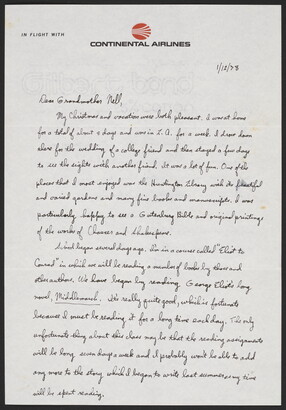 IN FLIGHT WITH
CONTINENTAL AIRLINES
1/12/78
Dear Grandmother Nell,
My Christmas and vacation were both pleasant. I was at home
for a total of about 9 days and was in L.A. for a week. I drove down
there for the wedding of a college friend and then stayed a few days
to see the sights with another friend. It was a lot of fun. One of the
places that I most enjoyed was the Huntington Library with its beautiful
and varied gardens and many fine books and manuscripts. I was
particularly happy to see a Gutenberg Bible and original printings
of the works of Chaucer and Shakespeare.
School began several days ago. I'm in a course called "Eliot to
Conrad" in which we will be reading a number of books by those and
other authors. We have begun by reading George Eliot's long
novel, Middlemarch. It's really quite good, which is fortunate
because I must be reading it for a long time each day. The only
unfortunate thing about this class may be that the reading assignments
will be long, seven days a week and I probably won't be able to add
any more to the story which I began to write last summer as my time
will be spent reading.